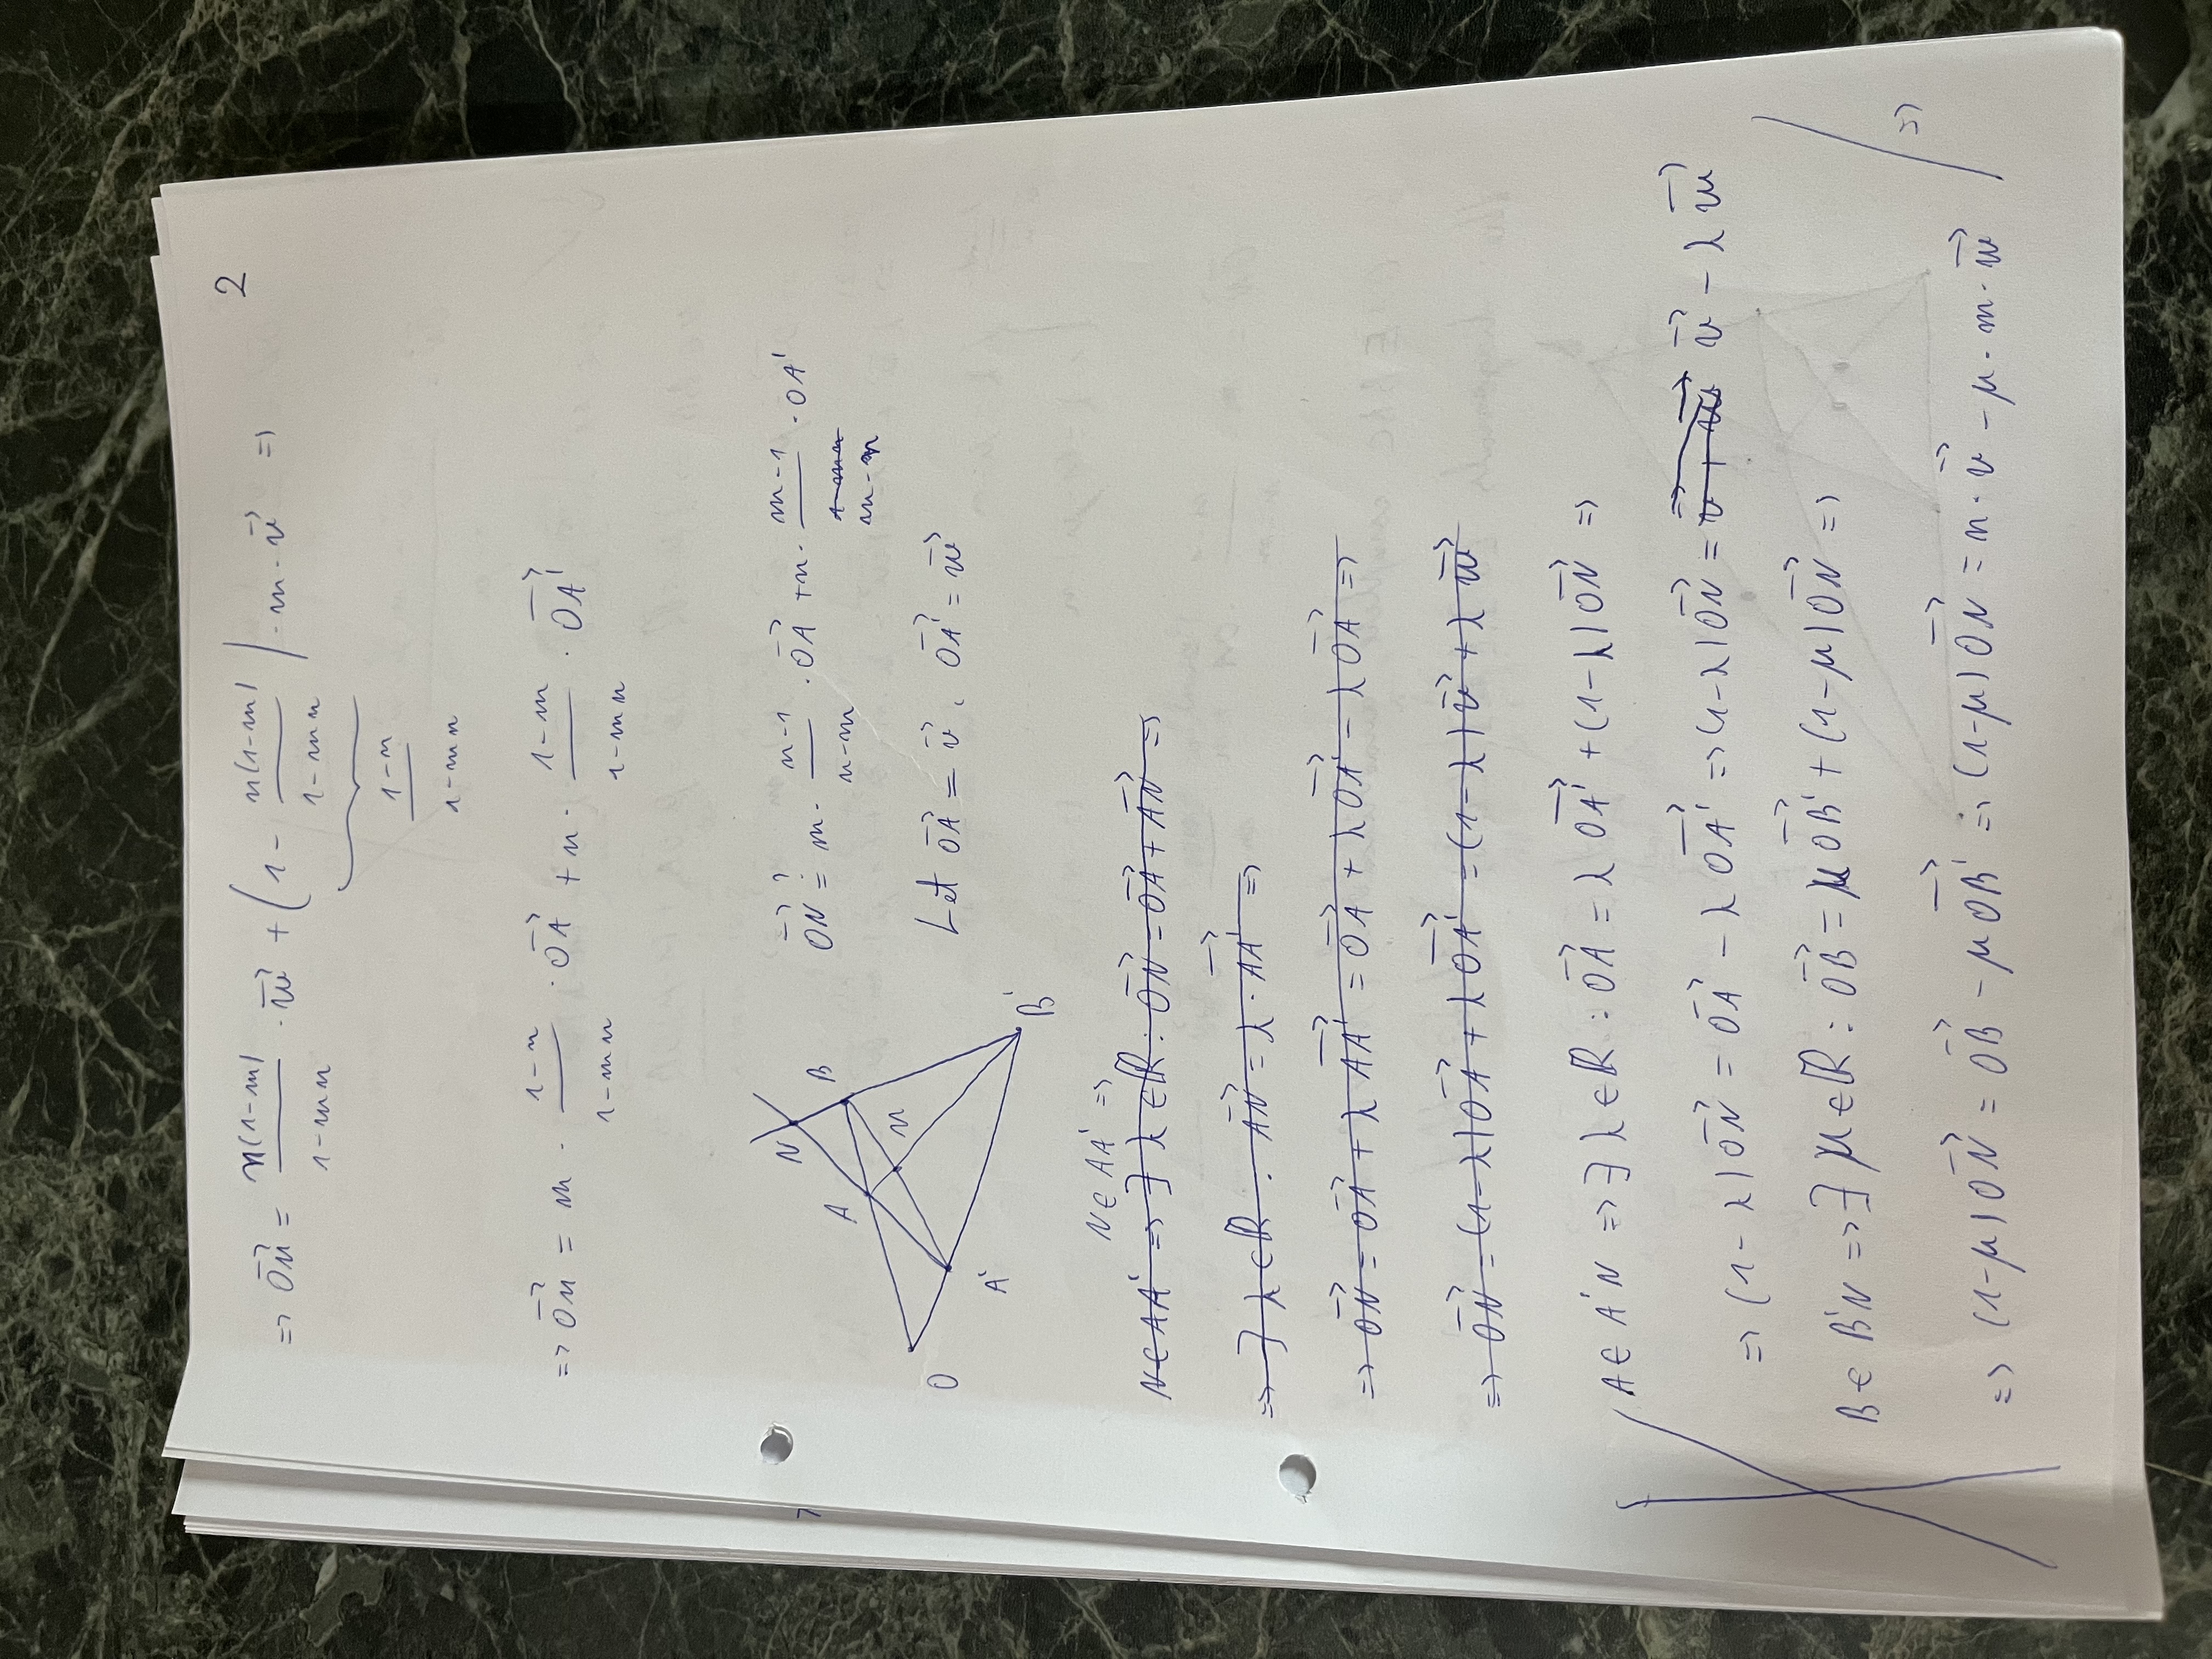 2
=> OM⃗ = n(1-m)/(1-mn) · w⃗ + (1 - n(1-m)/(1-mn)) · m · v⃗ =>
(1-n)/(1-mn)
=> OM⃗ = m · (1-n)/(1-mn) · OA⃗ + n · (1-m)/(1-mn) · OA'⃗
N
A
B
M
O
A'
B'
ON⃗ ?= m · (n-1)/(n-m) · OA⃗ + n · (m-1)/(m-n) · OA'
1-mn
Let OA⃗ = v⃗, OA'⃗ = w⃗
N ∈ AA' =>
N ∈ AA' => ∃ λ ∈ ℝ : ON⃗ = OA⃗ + AN⃗ =>
=> ∃ λ ∈ ℝ : AN⃗ = λ · AA'⃗ =>
=> ON⃗ = OA⃗ + λ AA'⃗ = OA⃗ + λ OA'⃗ - λ OA⃗ =>
=> ON⃗ = (1-λ) OA⃗ + λ OA'⃗ = (1-λ) v⃗ + λ w⃗
A ∈ A'N => ∃ λ ∈ ℝ : OA⃗ = λ OA'⃗ + (1-λ) ON⃗ =>
=> (1-λ) ON⃗ = OA⃗ - λ OA'⃗ => (1-λ) ON⃗ = v⃗ + w⃗ v⃗ - λ w⃗
B ∈ B'N => ∃ μ ∈ ℝ : OB⃗ = μ OB'⃗ + (1-μ) ON⃗ =>
=> (1-μ) ON⃗ = OB⃗ - μ OB'⃗ => (1-μ) ON⃗ = n · v⃗ - μ · m · w⃗ =>